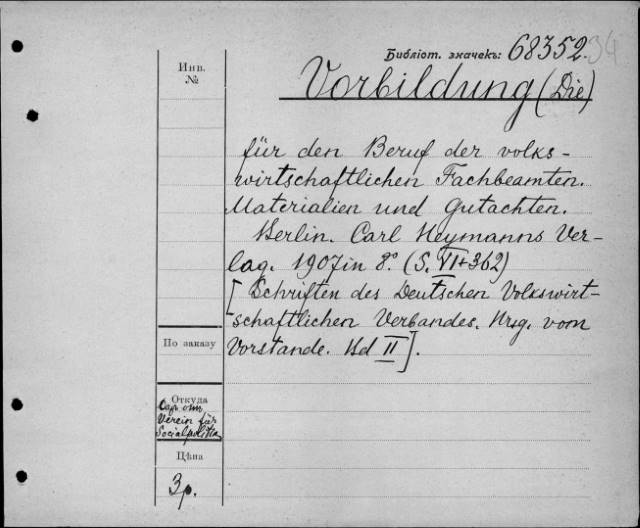 Библіот. значекъ: 68352.34
Инв.
№
Vorbildung (Die)
für den Beruf der volks-
wirtschaftlichen Fachbeamten.
Materialien und Gutachten.
Berlin. Carl Heymanns Ver-
lag. 1907 in 8º. (S. VI+362)
[Schriften des Deutschen Volkswirt-
schaftlichen Verbandes. Hrsg. vom
Vorstande. Bd II].
По заказу
Откуда
Verein für
Socialpolitik
Цѣна
3р.